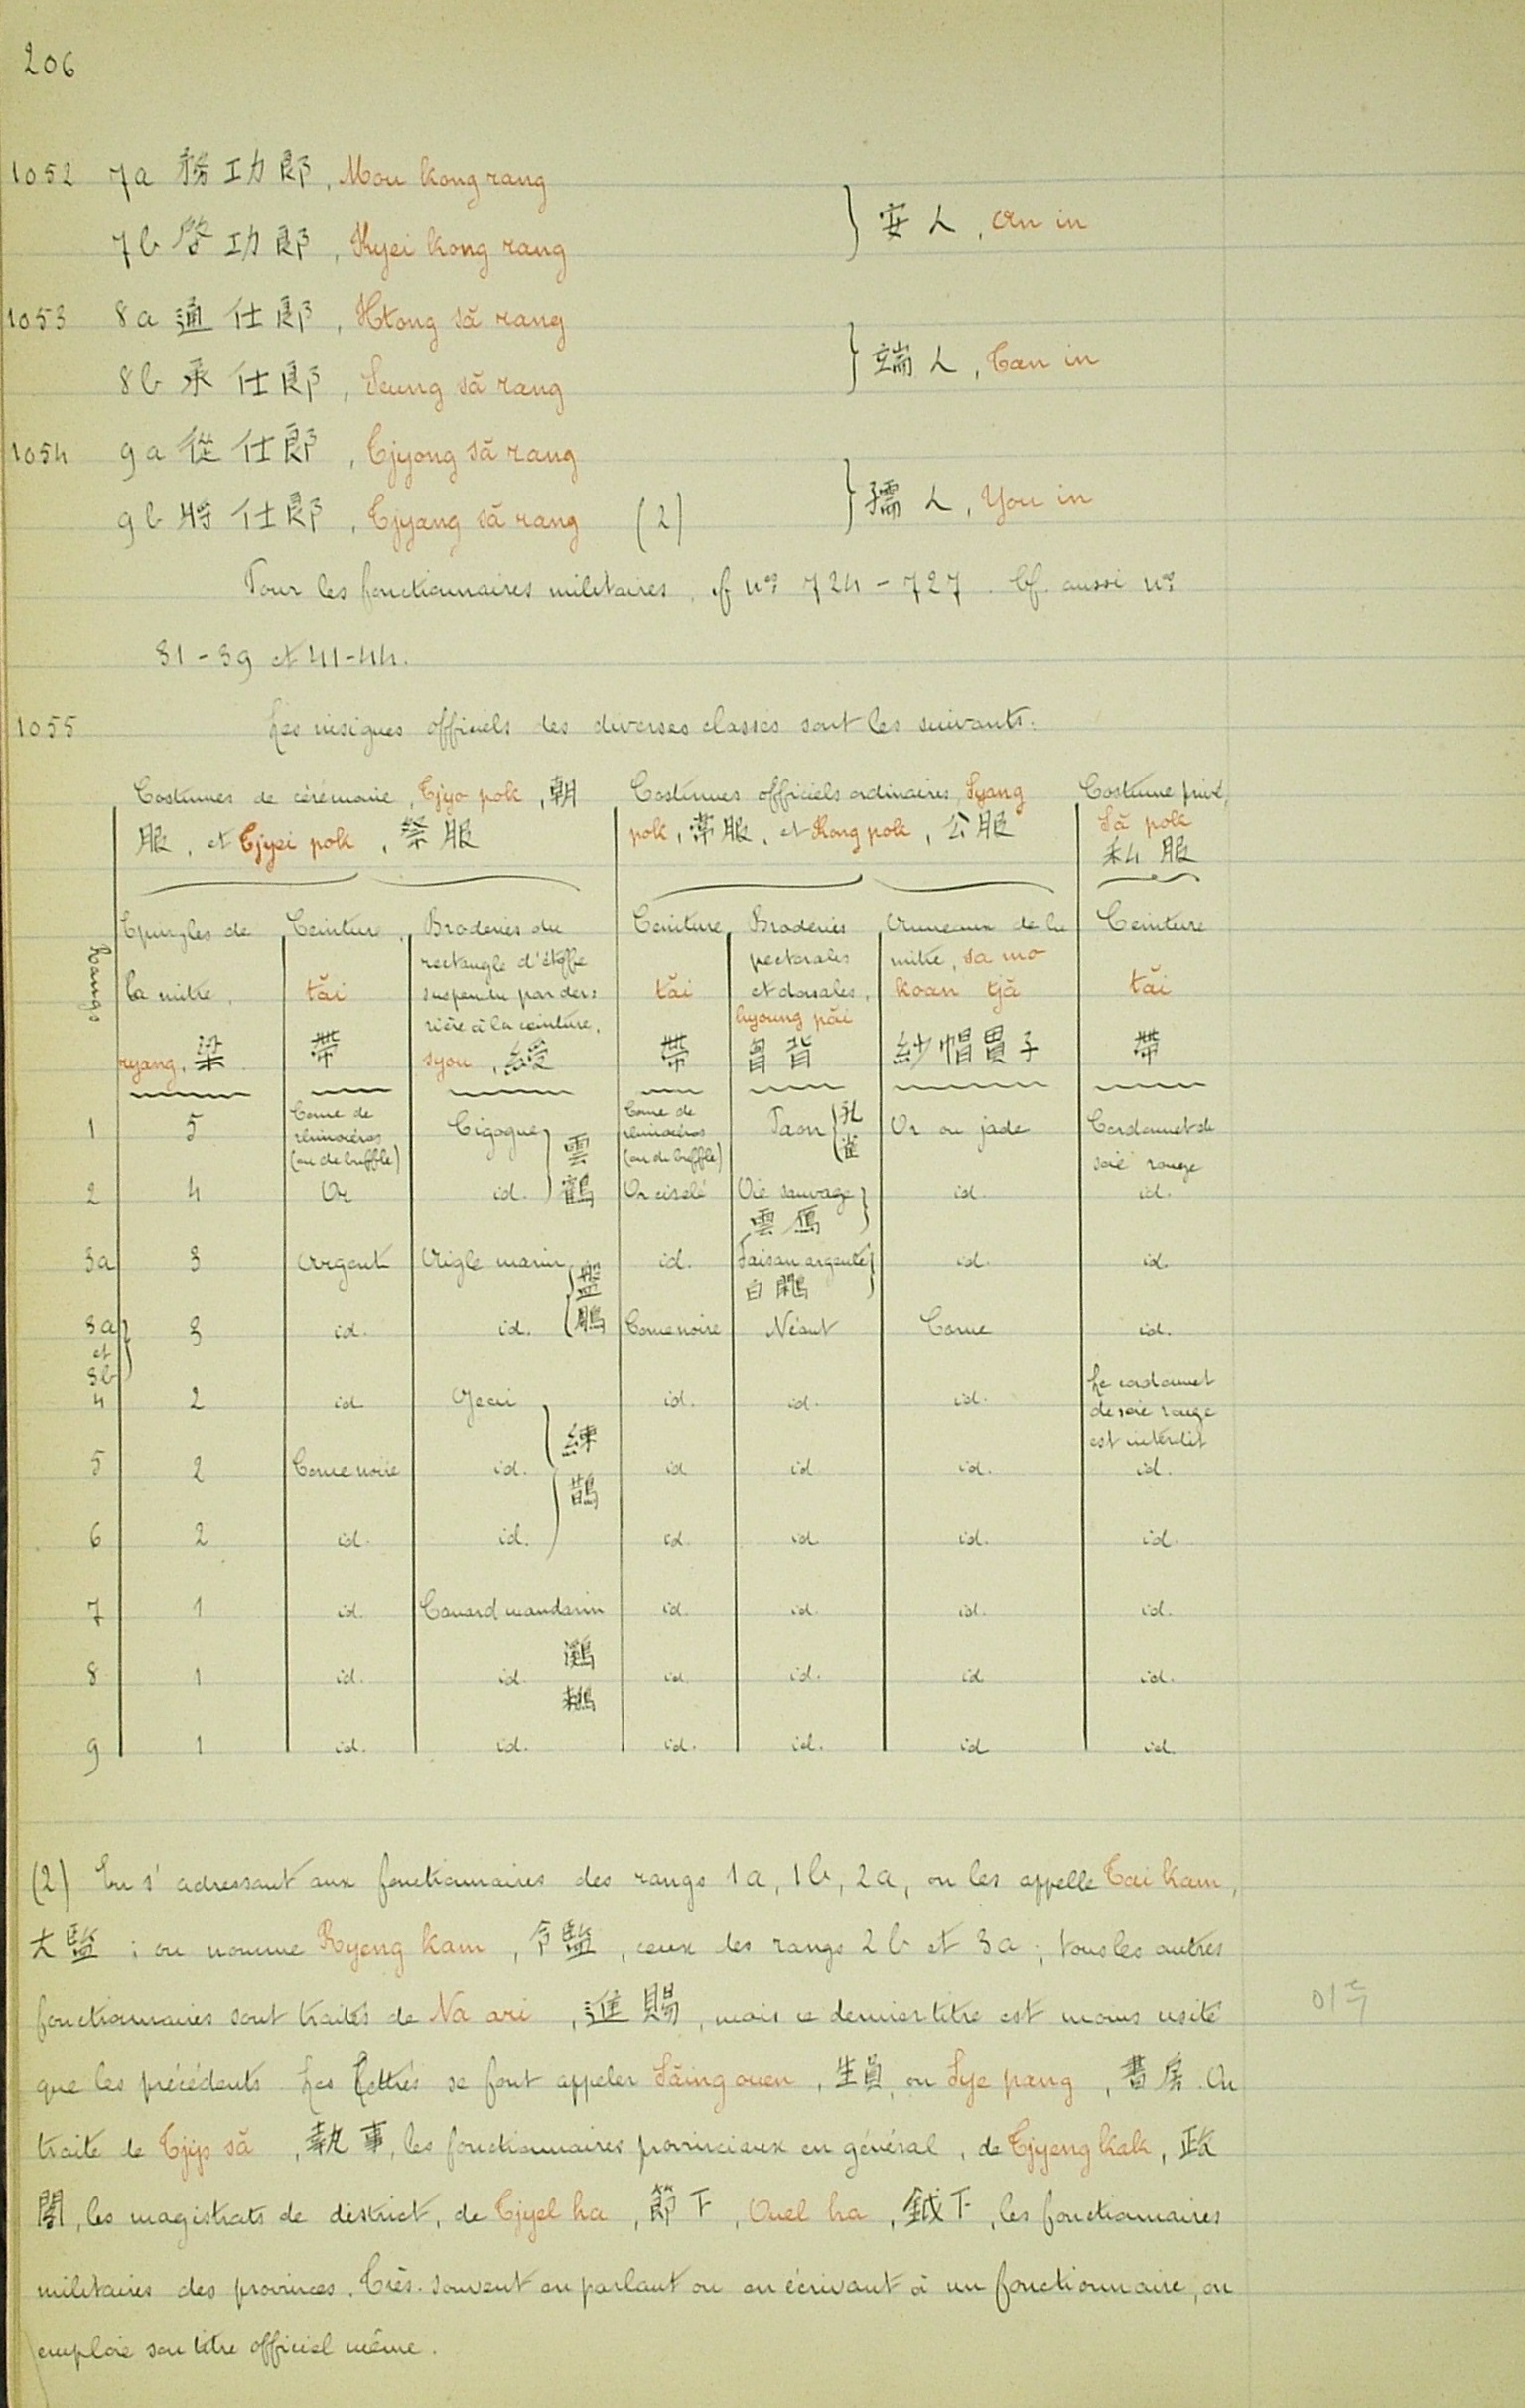 206
1052 7a 務功郎, Mou kong rang
} 安人, An in
7b 啓功郎, Kyei kong rang
1053 8a 通仕郎, Htong să rang
} 端人, Tan in
8b 承仕郎, Seung să rang
1054 9a 從仕郎, Tjyong să rang
} 孺人, You in
9b 將仕郎, Tjyang să rang (2)
Pour les fonctionnaires militaires, cf nos 724-727. Cf. aussi nos
31-39 et 41-44.
1055 Les insignes officiels des diverses classes sont les suivants:
Costumes de cérémonie, Tjyo pok, 朝 Costumes officiels ordinaires, Syang Costume privé,
服, et Tjyei pok, 祭服 pok, 常服, et Kong pok, 公服 Să pok
私服
Rangs
Epingles de Ceinture, Broderies du Ceinture Broderies Anneaux de la Ceinture
rectangle d'étoffe pectorales mitre, sa mo
la mitre, tăi suspendu par der= tăi et dorsales, koan tjă tăi
rière à la ceinture, hyoung păi
ryang, 梁 帶 syou, 綬 帶 胷背 紗帽貫子 帶
1 5 Corne de rhinocéros (ou de buffle) Cigogne } 雲鶴 Corne de rhinocéros (ou de buffle) Paon {孔雀 Or ou jade Cordonnet de soie rouge
2 4 Or id. Or ciselé Oie sauvage } 雲雁 id. id.
3a 3 Argent Aigle marin } 盤鵰 id. Faisan argenté } 白鷳 id. id.
3a et 3b } 3 id. id. Corne noire Néant Corne id.
4 2 id. Geai } 練鵲 id. id. id. Le cordonnet de soie rouge est interdit
5 2 Corne noire id. id id id. id.
6 2 id. id. id. id id. id.
7 1 id. Canard mandarin id. id. id. id.
鸂
8 1 id. id. id. id. id id.
鶒
9 1 id. id. id. id. id id.
(2) En s'adressant aux fonctionnaires des rangs 1a, 1b, 2a, on les appelle Tai kam,
大監; on nomme Ryeng kam, 令監, ceux des rangs 2b et 3a; tous les autres
fonctionnaires sont traités de Na ari, 進賜, mais ce dernier titre est moins usité
que les précédents. Les lettrés se font appeler Săing ouen, 生員, ou Sye pang, 書房. On
traite de Tjip să, 執事, les fonctionnaires provinciaux en général, de Tjyeng kak, 政
閣, les magistrats de district, de Tjyel ha, 節下, Ouel ha, 鉞下, les fonctionnaires
militaires des provinces. Très souvent en parlant ou en écrivant à un fonctionnaire, on
emploie son titre officiel même.